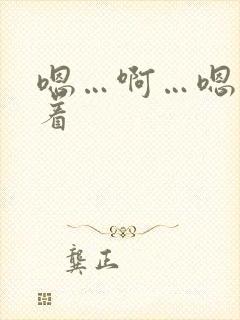 嗯…啊…嗯
着
龚正